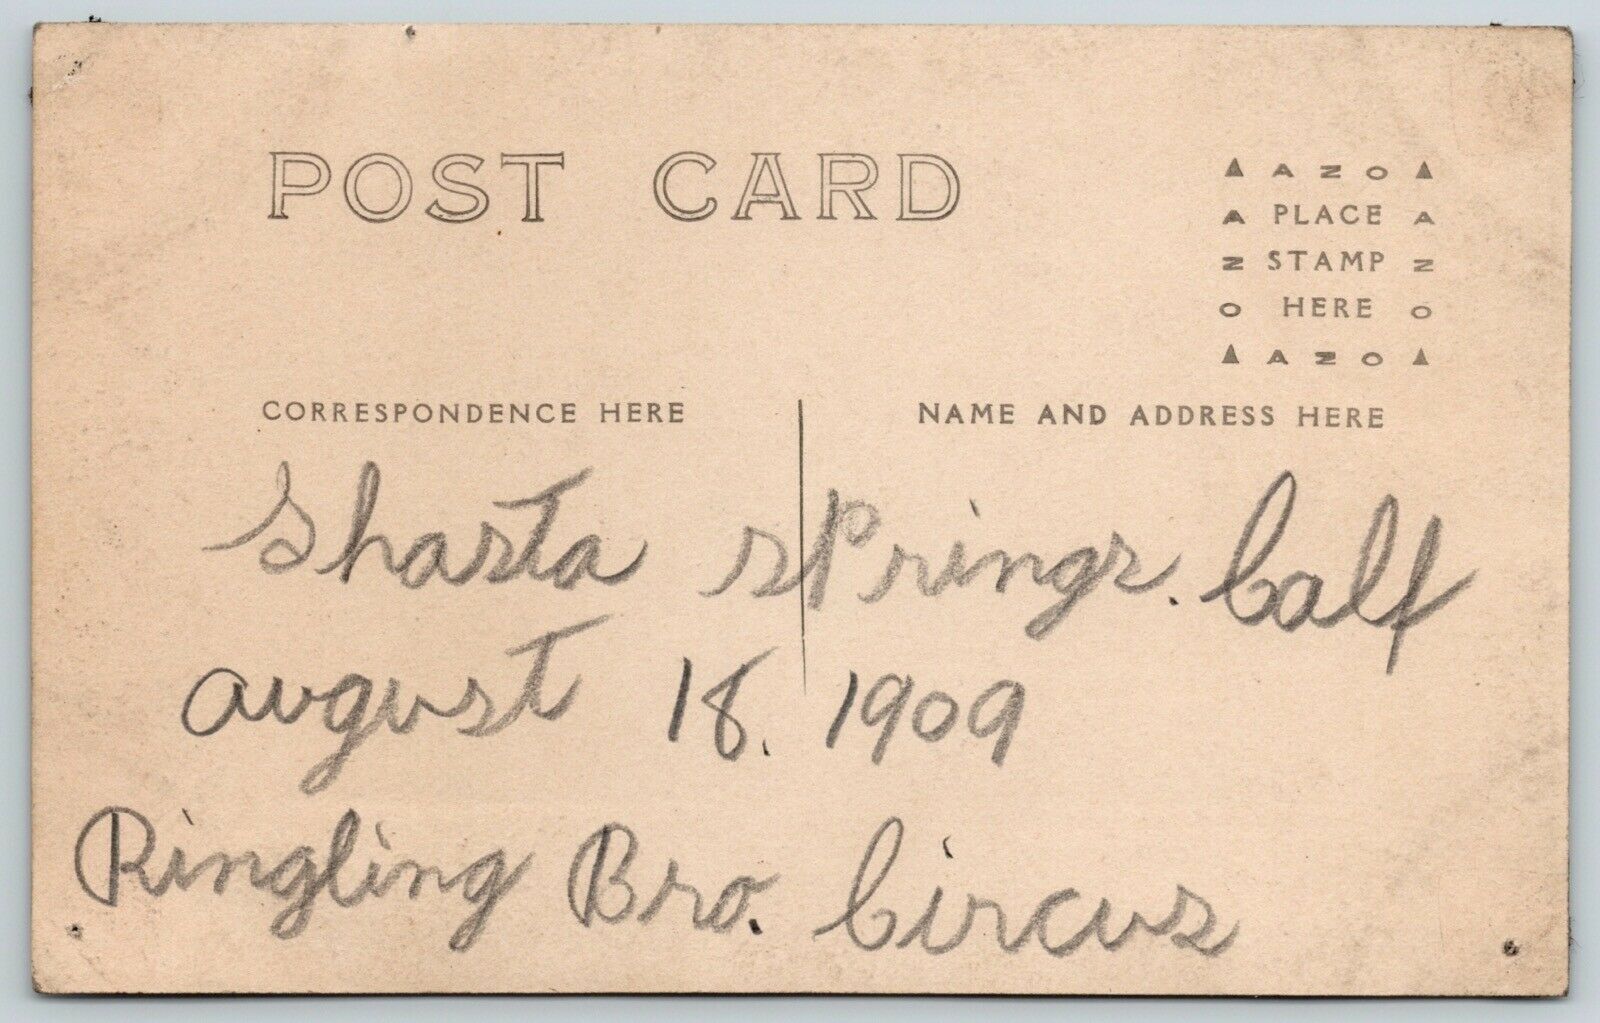 POST CARD
▲ A Z O ▲
A PLACE A
Z STAMP Z
O HERE O
▲ A Z O ▲
CORRESPONDENCE HERE
NAME AND ADDRESS HERE
Shasta sPrings. Calf
august 18. 1909
Ringling Bro. Circus